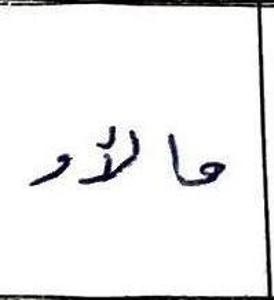 مالأو